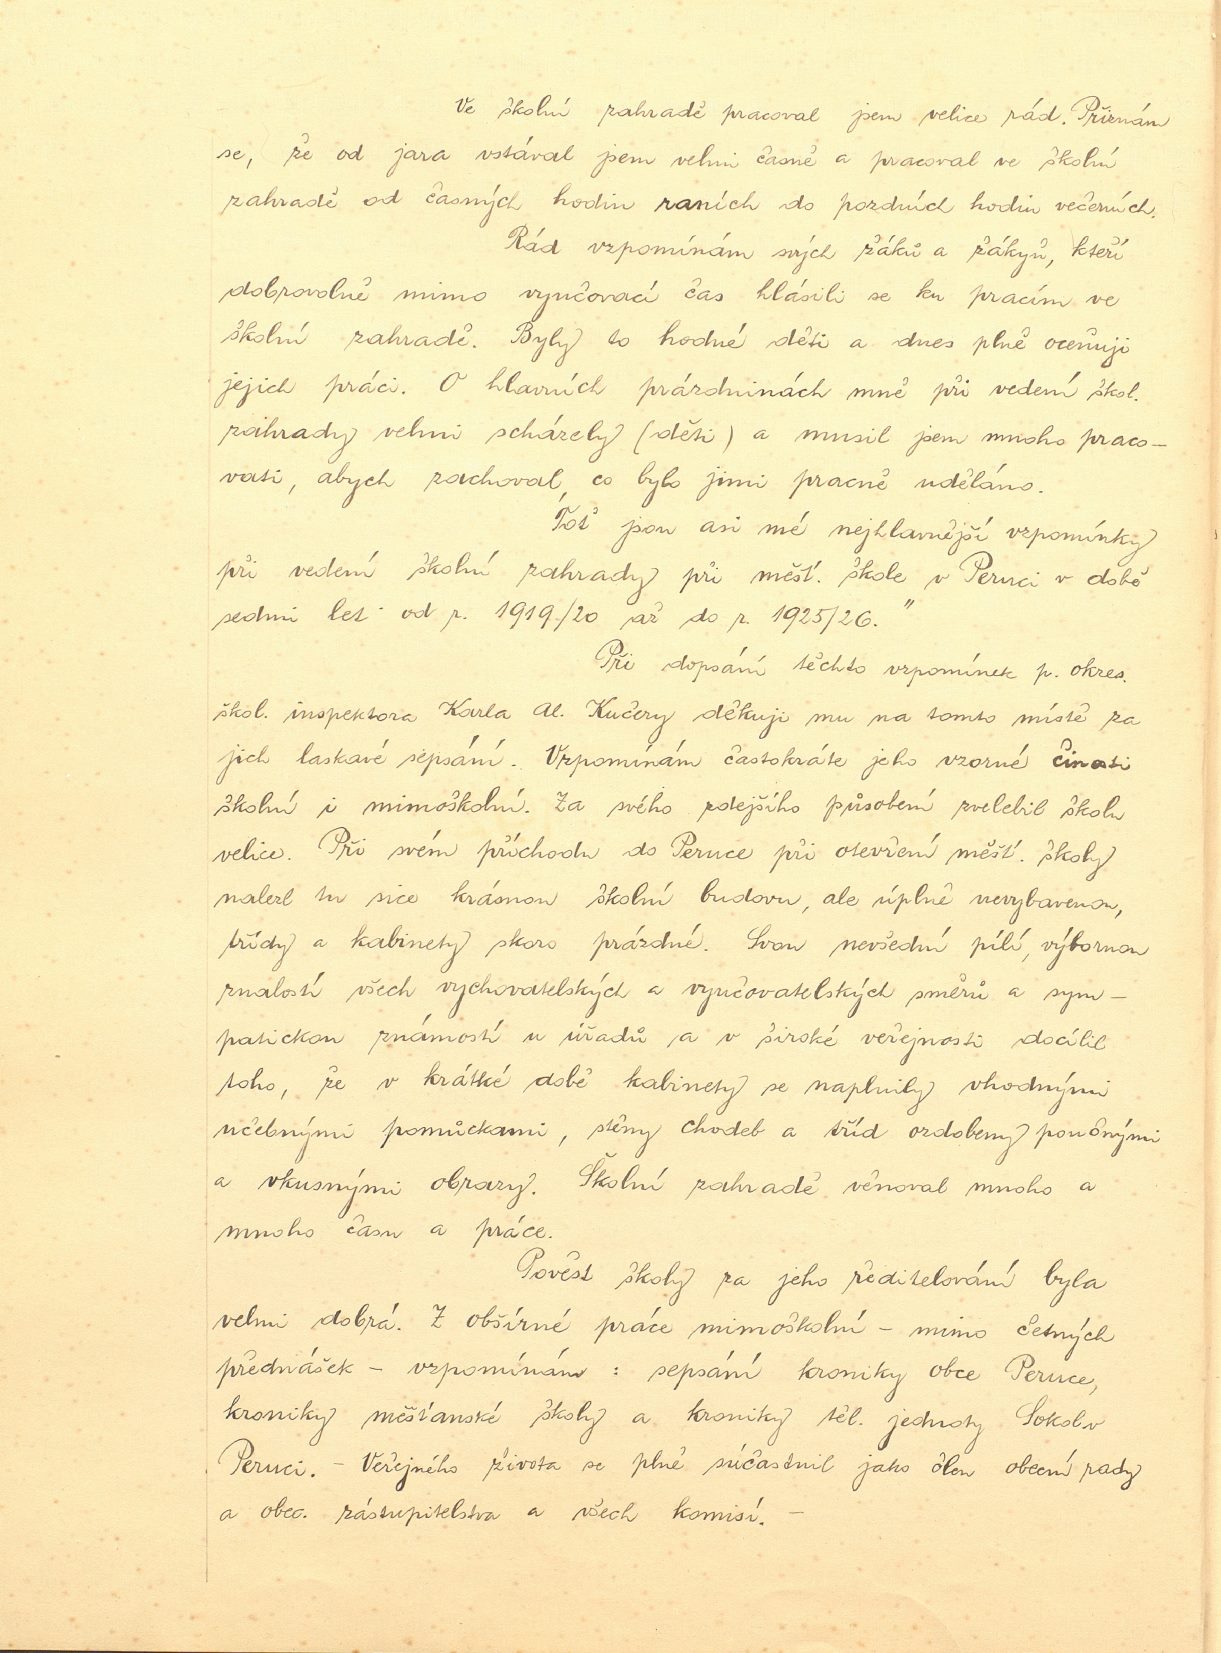 Ve školní zahradě pracoval jsem velice rád. Přiznám
se, že od jara vstával jsem velmi časně a pracoval ve školní
zahradě od časných hodin raních do pozdních hodin večerních.
Rád vzpomínám svých žáků a žákyň, kteří
dobrovolně mimo vyučovací čas hlásili se ku pracím ve
školní zahradě. Byly to hodné děti a dnes plně oceňuji
jejich práci. O hlavních prázdninách mně při vedení škol.
zahrady velmi scházely (děti) a musil jsem mnoho praco-
vati, abych zachoval, co bylo jimi pracně uděláno.
Toť jsou asi mé nejhlavnější vzpomínky
při vedení školní zahrady při měšť. škole v Peruci v době
sedmi let od r. 1919/20 až do r. 1925/26."
Při dopsání těchto vzpomínek p. okres.
škol. inspektora Karla Al. Kučery děkuji mu na tomto místě za
jich laskavé sepsání. Vzpomínám častokráte jeho vzorné činosti
školní i mimoškolní. Za svého zdejšího působení zvelebil školu
velice. Při svém příchodu do Peruce při otevření měšť. školy
nalezl tu sice krásnou školní budovu, ale úplně nevybavenou,
třídy a kabinety skoro prázdné. Svou nevšední pílí, výbornou
znalostí všech vychovatelských a vyučovatelských směrů a sym-
patickou známostí u úřadů a v široké veřejnosti docílil
toho, že v krátké době kabinety se naplnily vhodnými
učebnými pomůckami, stěny chodeb a tříd ozdobeny poučnými
a vkusnými obrazy. Školní zahradě věnoval mnoho a
mnoho času a práce.
Pověst školy za jeho ředitelování byla
velmi dobrá. Z obšírné práce mimoškolní - mimo četných
přednášek - vzpomínám : sepsání kroniky obce Peruce,
kroniky měšťanské školy a kroniky těl. jednoty Sokol v
Peruci. - Veřejného života se plně súčastnil jako člen obecní rady
a obec. zástupitelstva a všech komisí. -